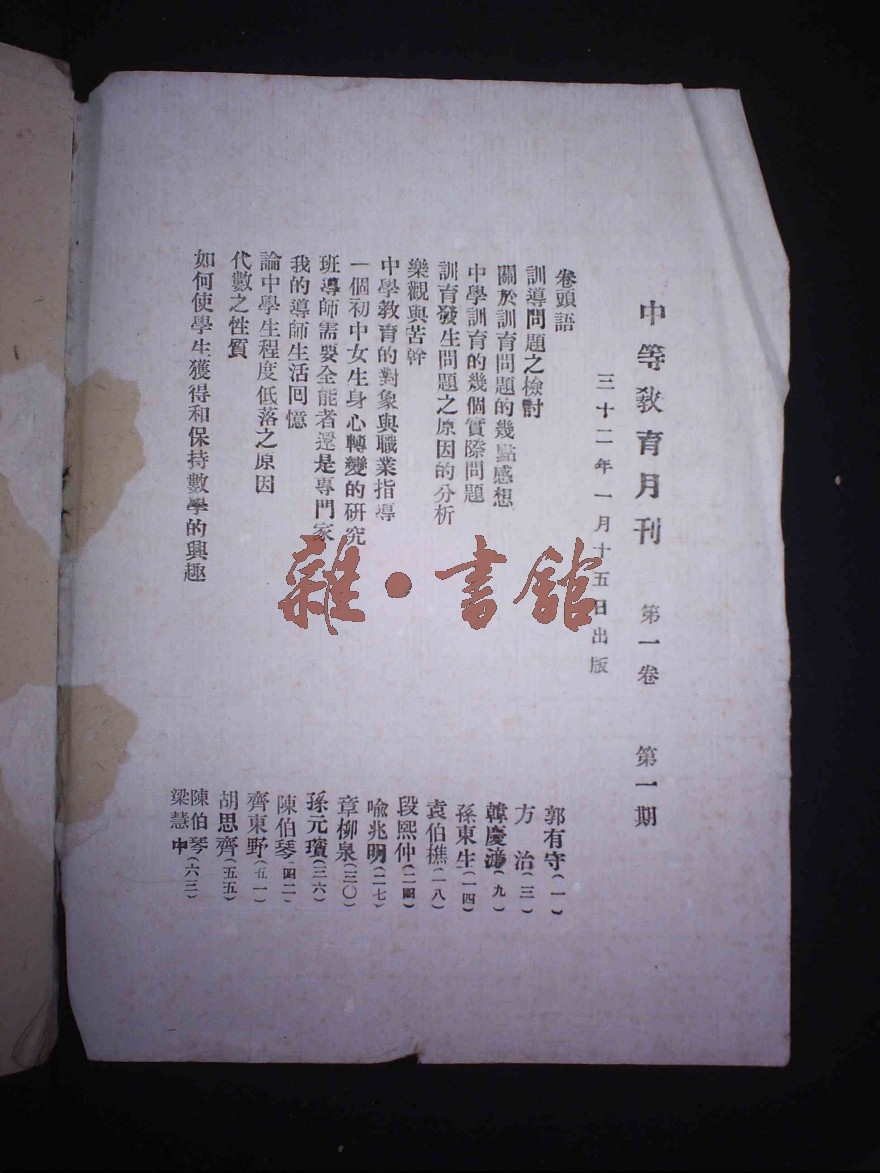 中等教育月刊 第一卷 第一期
三十二年一月十五日出版
卷頭語 郭有守(一)
訓導問題之檢討 方治(三)
關於訓育問題的幾點感想 韓慶(九)
中學訓育的幾個實際問題 孫東生(一四)
訓育發生問題之原因的分析 袁伯樵(一八)
樂觀與苦幹 段熙仲(二四)
中學教育的對象與職業指導 喩兆明(二七)
一個初中女生身心轉變的研究 章柳泉(三〇)
班導師需要全能者還是專門家 孫元(三六)
我的導師生活回憶 陳伯琴(四二)
論中學生程度低落之原因 齊東野(五一)
代數之性質 胡思齊(五五)
如何使學生獲得和保持數學的興趣 陳伯琴
梁慧中(六三)
雜·書館